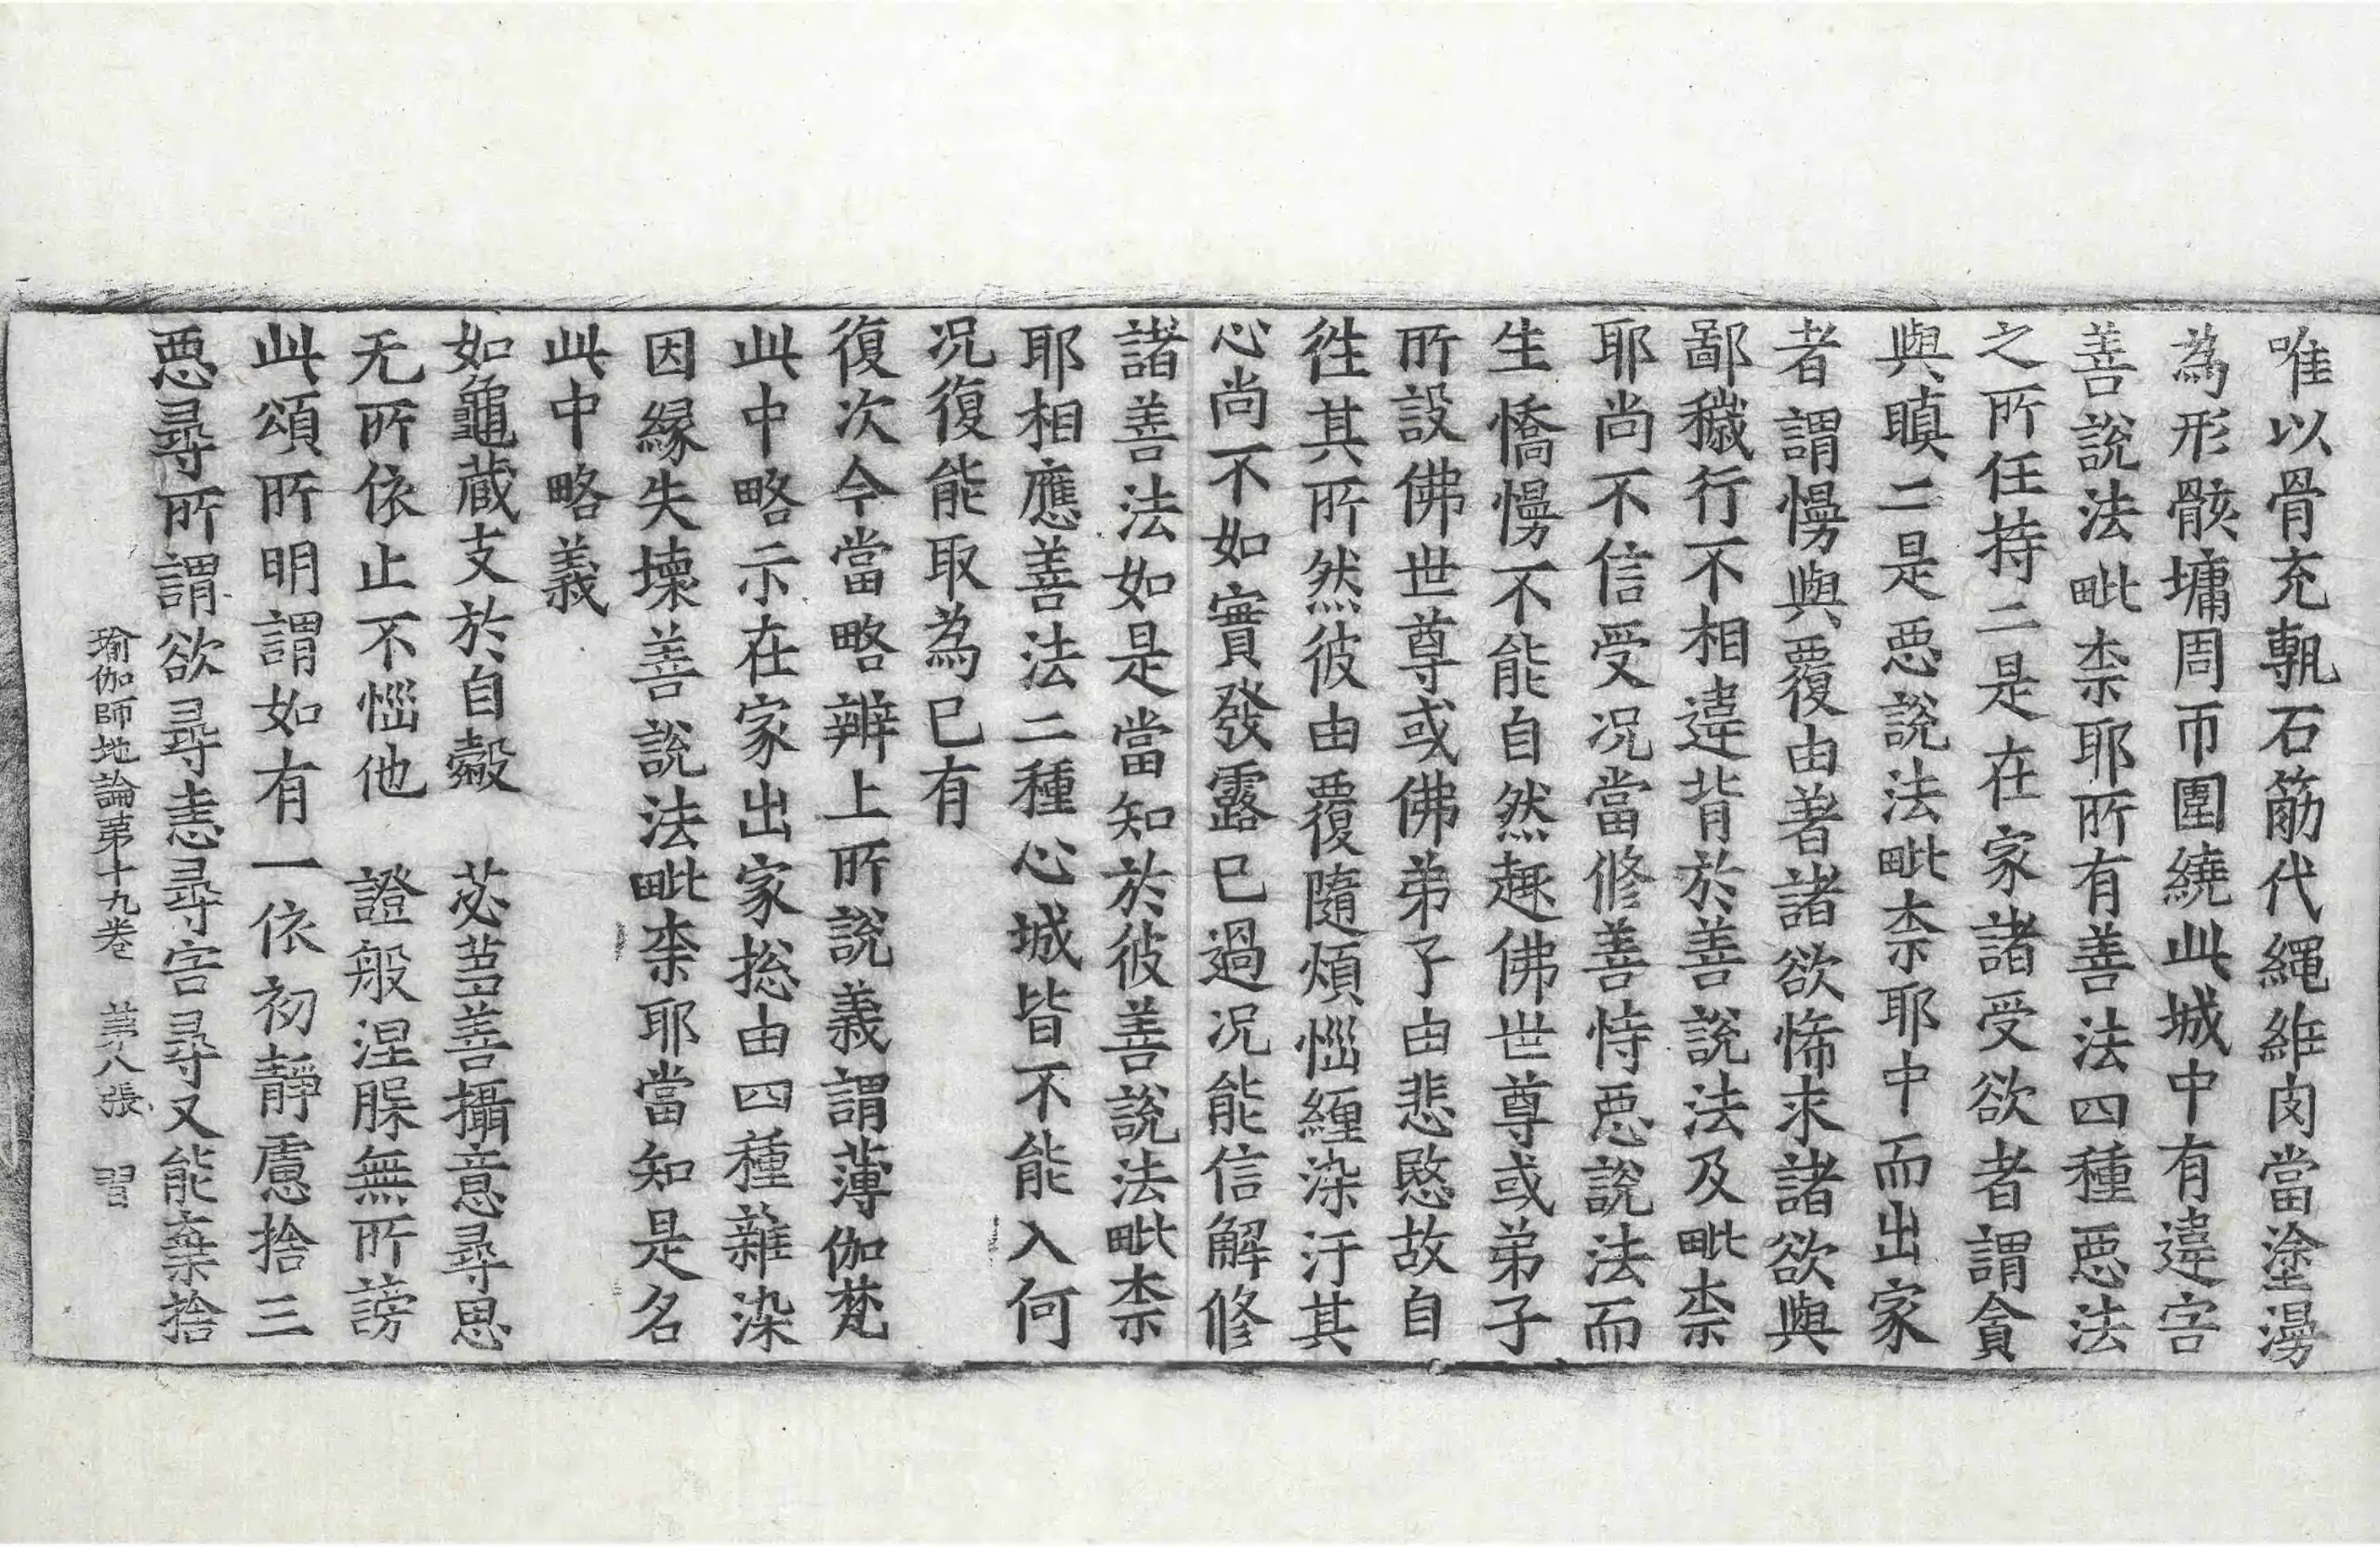 唯以骨充塼石筋代繩維肉當塗漫
為形骸墉周帀圍繞此城中有違害
善說法毗柰耶所有善法四種惡法
之所任持二是在家諸受欲者謂貪
與瞋二是惡說法毗柰耶中而出家
者謂慢與覆由著諸欲悕求諸欲與
鄙穢行不相違背於善說法及毗柰
耶尚不信受况當修善恃惡說法而
生憍慢不能自然趣佛世尊或弟子
所設佛世尊或佛弟子由悲愍故自
往其所然彼由覆隨煩惱纏染汙其
心尚不如實發露已過况能信解修
諸善法如是當知於彼善說法毗柰
耶相應善法二種心城皆不能入何
况復能取為已有
復次今當略辨上所說義謂薄伽梵
此中略示在家出家捴由四種雜染
因緣失壞善說法毗柰耶當知是名
此中略義
如龜藏支於自㲉　苾蒭善攝意尋思
无所依止不惱他　證般涅槃無所謗
此頌所明謂如有一依初靜慮捨三
惡尋所謂欲尋恚尋害尋又能棄捨
瑜伽師地論第十九卷　第八張　習